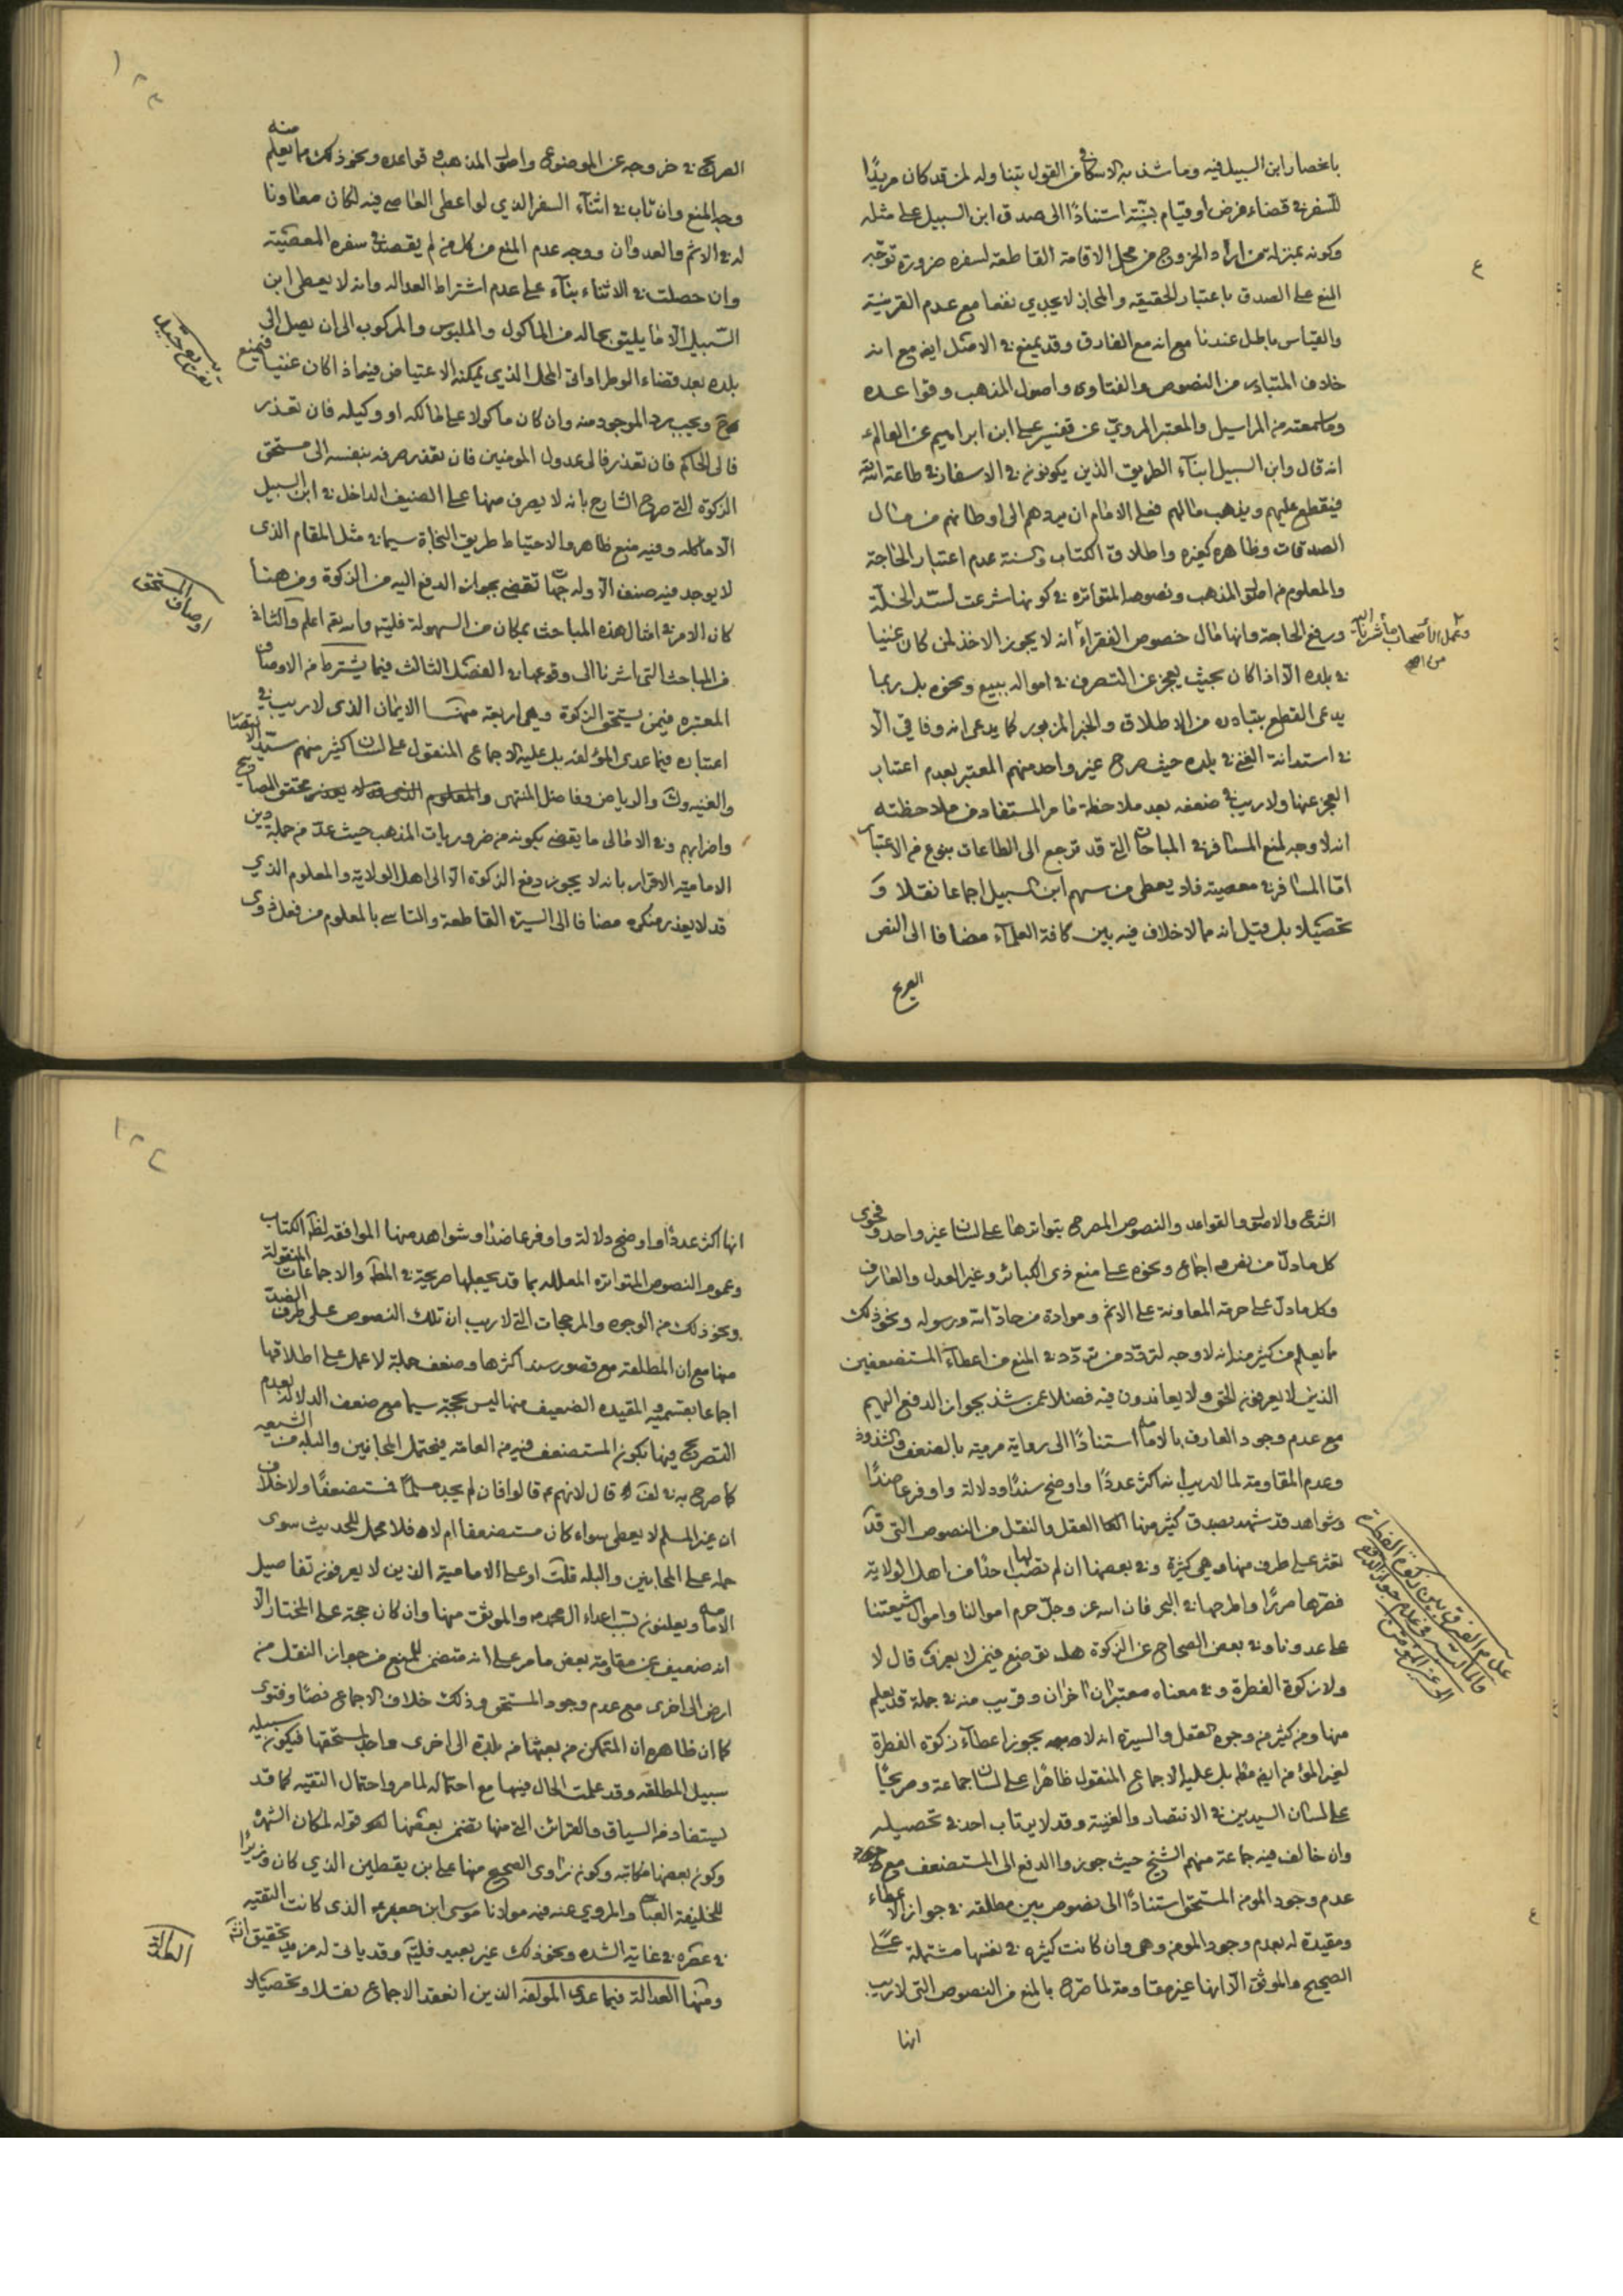 بانحصار ابن السبيل فيه وما شذ به الاسكافي في القول بتناوله لمن قد كان مريدًا
للسفر في قضاء فرض او قيام بسنة استنادًا الى صدق ابن السبيل على مثله
وكونه بمنزلة من اراد الخروج من محل الاقامة القاطعة لسفره ضرورة توجّه
المنع على الصدق باعتبار الحقيقه والمجاز لا يجدي نفعا مع عدم القرينة
والقياس باطل عندنا مع انه مع الفارق وقد يمنع في الاصل ايض مع انه
خلاف المتبادر من النصوص والفتاوى واصول المذهب وقواعده
وما سمعته من المراسيل والمعتبر المروي عن تفسير علي ابن ابراهيم عن العالم ع
انه قال وابن السبيل ابناء الطريق الذين يكونون في الاسفار في طاعة الله
فيقطع عليهم ويذهب مالهم فعلى الامام ان يردهم الى اوطانهم من مال
الصدقات وظاهره كغيره واطلاق الكتاب والسنة عدم اعتبار الحاجة
والمعلوم من اصول المذهب ونصوصه المتواتره في كونها شرعت لسد الخلة
ورفع الحاجة وانها مال خصوص الفقراء انه لا يجوز الاخذ لمن كان غنيا
في بلده الا اذا كان بحيث يعجز عن التصرف في امواله ببيع ونحوه بل ربما
يدعى القطع بتبادره من الاطلاق والخبر المزبور كما يدعى انه وفاقي الا
في استدانة الغني في بلده حيث صرح غير واحد منهم المعتبر بعدم اعتبار
العجز عنها ولا ريب في ضعفه بعد ملاحظة ما مر المستفاد من ملاحظته
انه لا وجه لمنع المسافر في المباحات التي قد ترجع الى الطاعات بنوع من الاعتبار
امّا المسافر في معصيته فلا يعطى من سهم ابن السبيل اجماعا نقلا و
تحصيلا بل قيل انه مما لا خلاف فيه بين كافة العلماء مضافا الى النص
الصريح
الصريح في خروجه عن الموضوع واصول المذهب وقواعده ونحو ذلك مما يعلم منه
وجه المنع وان تاب في اثناء السفر الذي لو اعطى العاصي فيه لكان معاونا
له في الاثم والعدوان ووجه عدم المنع من كل من لم يقصد في سفره المعصية
وان حصلت في الاثناء بناء على عدم اشتراط العداله وانه لا يعطى ابن
السبيل الا ما يليق بحاله من الماكول والملبوس والمركوب الى ان يصل الى
بلده بعد قضاء الوطر او الى المحل الذي يمكنه الاعتياض فيه اذا كان غنيا فيمنع
ح ويجب رد الموجود منه وان كان ماكولا على مالكه او وكيله فان تعذر
فالى الحاكم فان تعذر فالى عدول المومنين فان تعذر صرفه بنفسه الى مستحق
الزكوة التي صرح الشارح بانه لا يصرف منها على الضيف الداخل في ابن السبيل
الا ما اكله وفيه منع ظاهر والاحتياط طريق النجاة سيما في مثل المقام الذي
لا يوجد فيه صنف الا وله جهات تقضي بجواز الدفع اليه من الزكوة ومن هنا
كان الامر في امثال هذه المباحث بمكان من السهولة فليتد والله يقم اعلم والثالث
من المباحث التي اشرنا الى وقوعها في الفصل الثالث فيما يشترط من الاوصاف
المعتبره فيمن يستحق الزكوة وهي اربعة منها الايمان الذي لا ريب في
اعتباره فيما عدى المؤلفه بل عليه الاجماع المنقول على لسان كثير منهم سيد الانتصار
والغنيه والرياض وفاضل المنتهى ومحقق المصابيح
واضرابهم وفي الامالي ما يقضي بكونه من ضروريات المذهب حيث عدّ من جملة دين
الاماميه الاقرار بانه لا يجوز دفع الزكوة الا الى اهل الولاية والمعلوم الذي
قد لا يعذر منكره مضافا الى السيرة القاطعة والتاسي بالمعلوم من فعل ذوي
اوصاف المستحق
الشرع والاصول والقواعد والنصوص المصرح بتواترها على لسان غير واحد وفحوى
كل ما دل من نص واجماع ونحوه على منع ذي الكبائر وغير العدل والعارف
وكل ما دل على حرمة المعاونة على الاثم وموادة من حاد الله ورسوله ونحو ذلك
ما يعلم من كثير منه انه لا وجه لتردّد من تردّد في المنع من اعطاء المستضعفين
الذين لا يعرفون الحق ولا يعاندون فيه فضلا عمن شذ بجواز الدفع اليهم
مع عدم وجود العارف بالامامة استنادًا الى رواية مرمية بالضعف والشذوذ
وعدم المقاومة لما لا ريب انه اكثر عددًا واوضح سندًا ودلالة واوفر عاضدًا
وشواهد قد شهد بصدق كثير منها العقل والنقل من النصوص التي قد
نعثر على طرف منها وهي كثيرة وفي بعضها ان لم تصب لها احدا من اهل الولاية
فصرها صرًا واطرحها في البحر فان الله عز وجل حرم اموالنا واموال شيعتنا
على عدونا وفي بعض الصحاح عن الزكوة هل توضع فيمن لا يعرف قال لا
ولا زكوة الفطرة وفي معناه معتبران اخران وقريب منه في جملة قد يعلم
منها ومن كثير من وجوه العقل والسيرة انه لا يجوز اعطاء زكوة الفطرة
لغير المؤمن ايض مثله بل عليه الاجماع المنقول ظاهرًا على لسان جماعة وصريحًا
على لسان السيدين في الانتصار والغنية وقد لا يرتاب احد في تحصيله
وان خالف فيه جماعة منهم الشيخ حيث جوزوا الدفع الى المستضعف مع
عدم وجود المومن المستحق استنادًا الى نصوص بين مطلقه في جواز الاعطاء
ومقيدة له بعدم وجود المومن وهي وان كانت كثيره في نفسها مشتملة على
الصحيح والموثق الا انها غير مقاومة لما صرح بالمنع من النصوص التي لا ريب
انها
انها اكثر عددًا واوضح دلالة واوفر عاضدًا وشواهد منها الموافقه لظ الكتاب
وعموم النصوص المتواتره المعلله بما قد يجعلها صريحة في المط والاجماعات المنقولة
ونحو ذلك من الوجوه والمرجحات التي لا ريب ان تلك النصوص على طرف الضد
منها مع ان المطلقة مع قصور سند اكثرها وضعف جملة لا عمل على اطلاقها
اجماعا بقسميه والمقيده الضعيف منها ليس بحجة سيما مع ضعف الدلالة بعدم
التصريح فيها بكون المستضعف فيه من العامه فيحتمل المجانين والبله من الشيعه
كما صرح به في لف قال لانهم ع قالوا فان لم يجد مسلمًا فمستضعفًا ولا خلاف
ان غير المسلم لا يعطى سواء كان مستضعفا ام لا فلا محمل للحديث سوى
حمله على المجانين والبله قلت او على الاماميه الذين لا يعرفون تفاصيل
الامامة ويعلنون بسب اعداء ال محمد ص والموثق منها وان كان حجة على المختار الا
انه ضعيف عن مقاومة بعض ما مر على انه متضمن للمنع من جواز النقل من
ارض الى اخرى مع عدم وجود المستحق وذلك خلاف الاجماع نصًا وفتوى
كما ان ظاهره ان المتمكن من بعثها من بلدة الى اخرى واجد لمستحقها فيكون سبيله
سبيل المطلقه وقد علمت الحال فيها مع احتماله لما مر واحتمال التقيه كما قد
يستفاد من السياق والقرائن التي منها تضمن بعضها قوله لمكان الشهره
وكون بعضها مكاتبه وكون راوي الصحيح منها علي ابن يقطين الذي كان وزيرًا
للخليفة العباسي والمروي عنه فيه مولانا موسى ابن جعفر ع الذي كانت التقيه
في عصره في غاية الشده ونحو ذلك غير بعيد فليتد وقد ياتي له مزيد تحقيق انش
ومنها العدالة فيما عدى المولفة الذين انعقد الاجماع نقلا وتحصيلا
العدالة